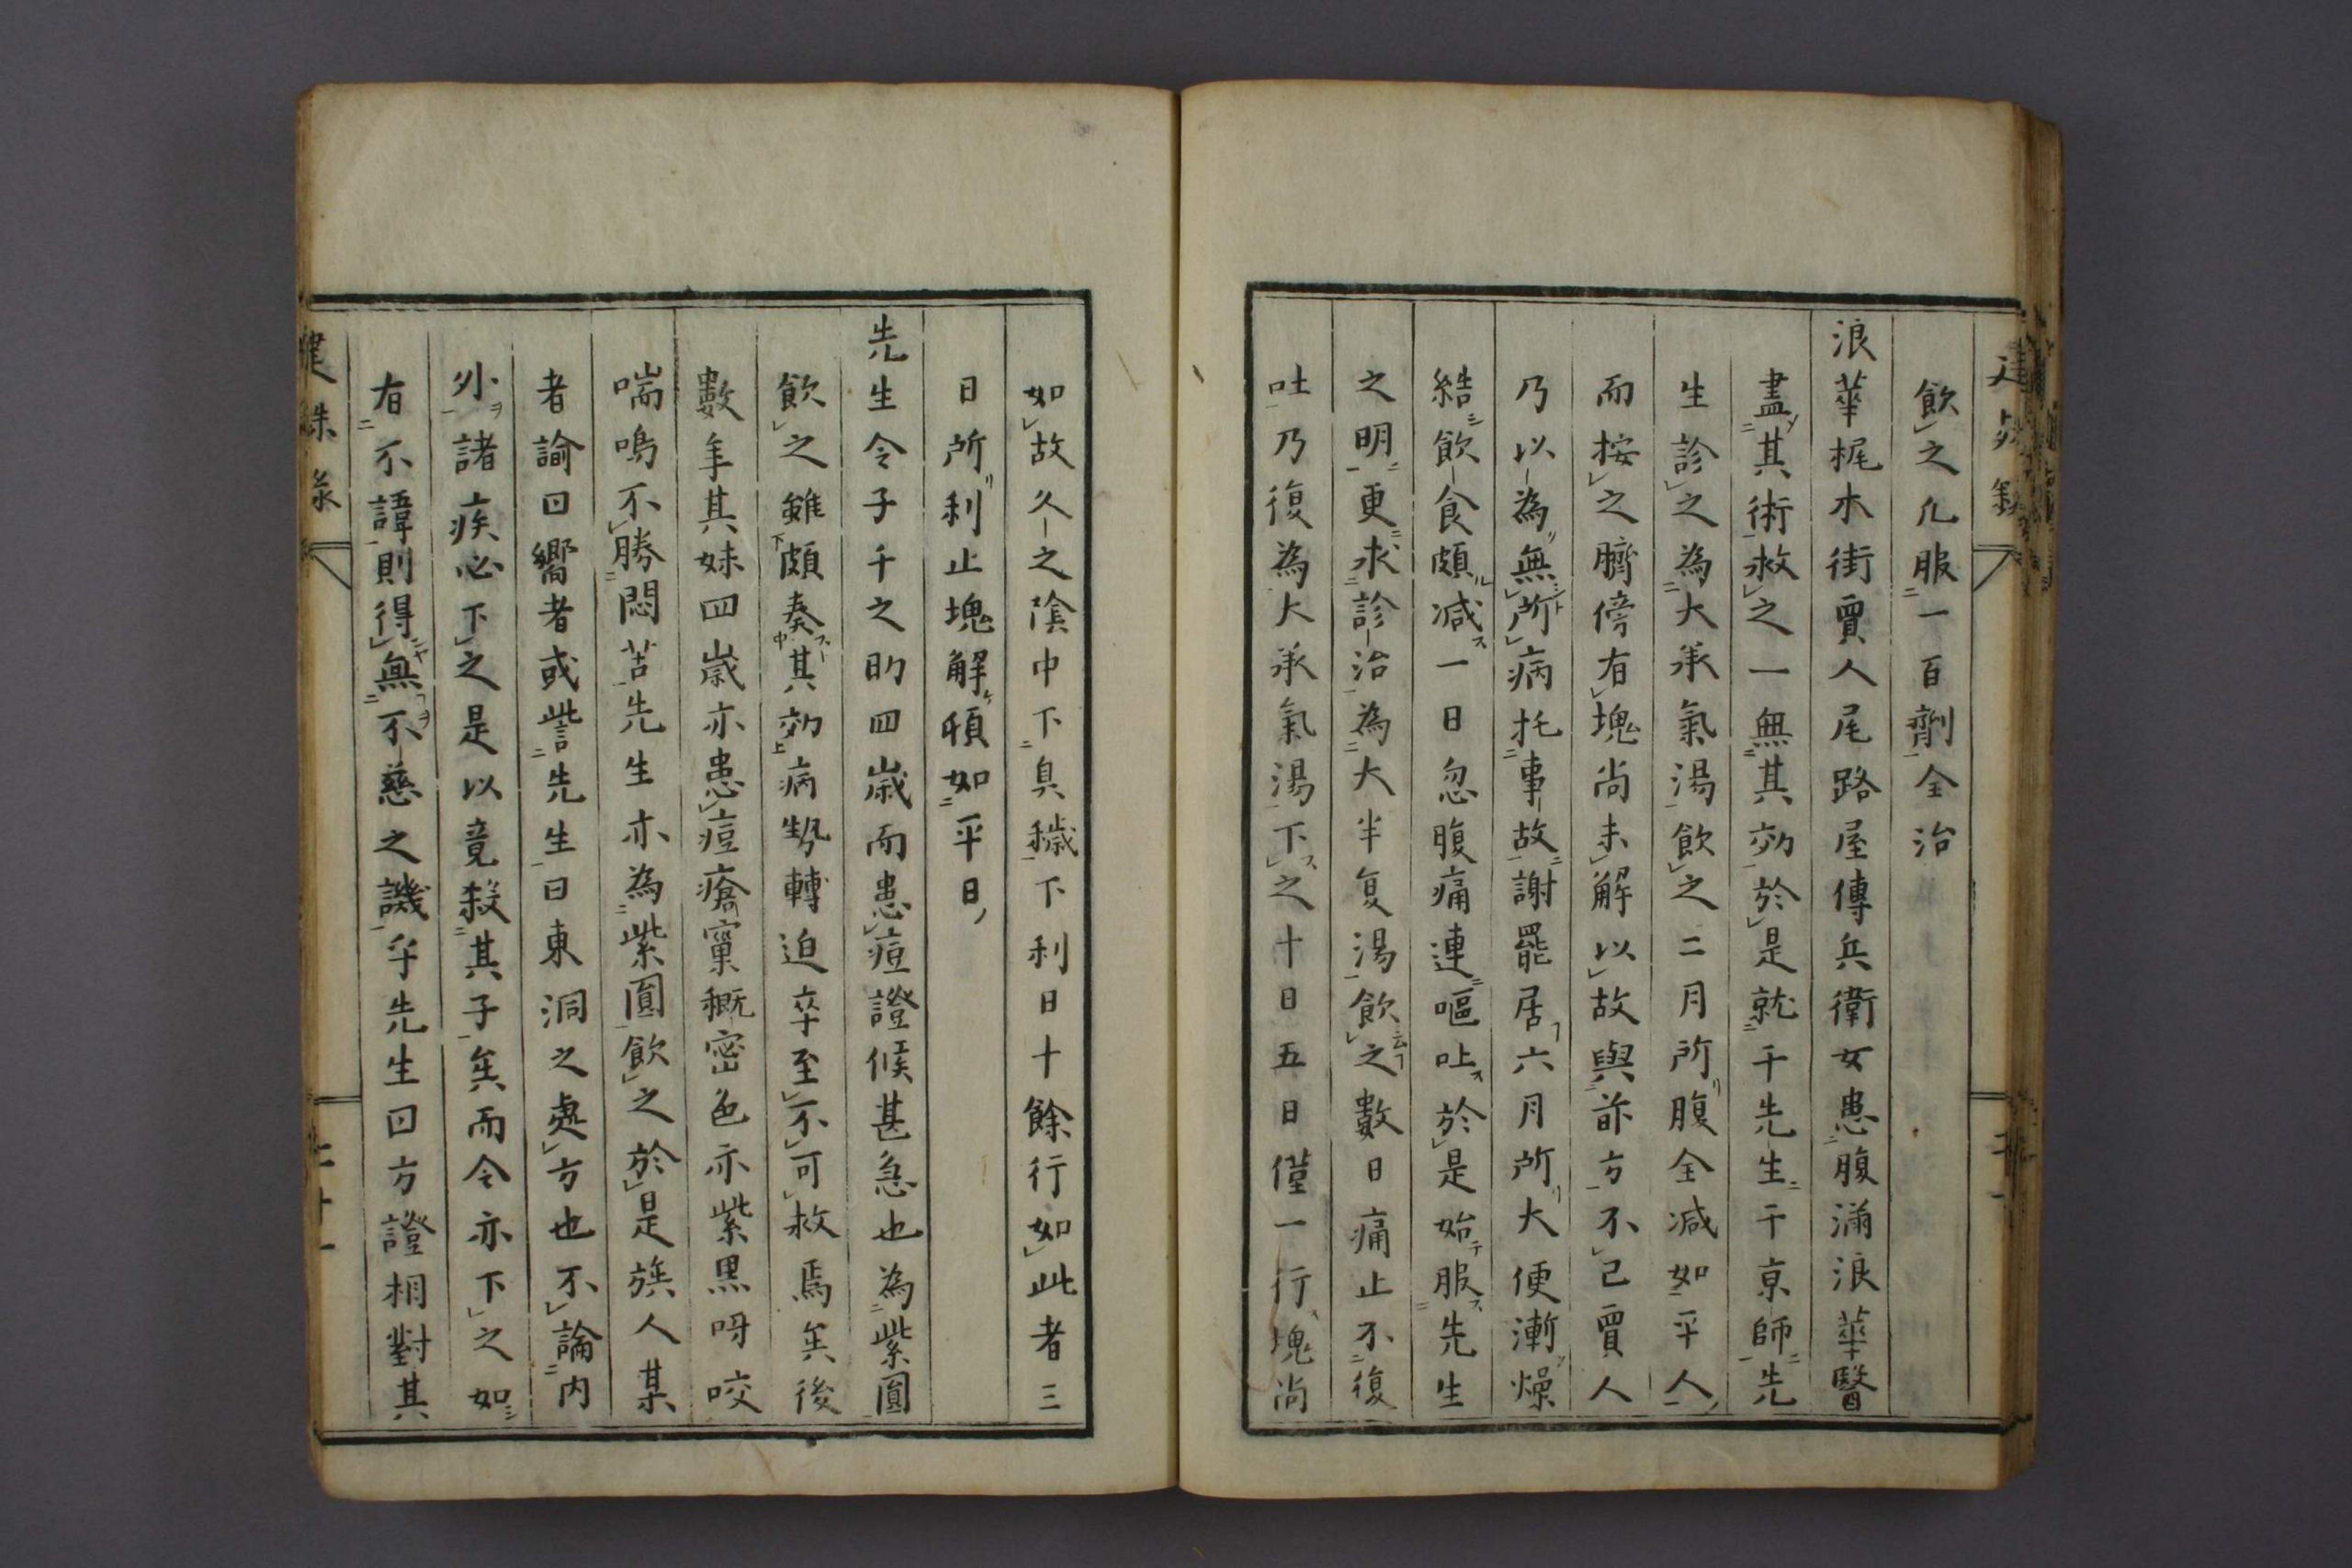 飲之凡服一百劑全治
浪華梶木街賈人尾路屋傳兵衛女患腹滿浪華醫
盡其術救之一無其効於是就千先生于京師先
生診之為大承氣湯飲之二月所腹全減如平人
而按之臍傍有塊尚未解以故與前方不已賈人
乃以為無所病托事故謝罷居六月所大便漸燥
結飲食頗減一日忽腹痛連嘔吐於是始服先生
之明更求診治為大半夏湯飲之數日痛止不復
吐乃復為大承氣湯下之十日五日僅一行塊尚
如故久之陰中下臭穢下利日十餘行如此者三
日所利止塊解頓如平日
先生令子千之助四歲而患痘證候甚急也為紫圓
飲之雖頗奏其効病勢轉迫卒至不可救焉矣後
數年其妹四歲亦患痘瘡窠穊密色亦紫黒呀咬
喘鳴不勝悶苦先生亦為紫圓飲之於是族人某
者諭曰嚮者或訾先生曰東洞之處方也不論内
外諸疾必下之是以竟殺其子矣而令亦下之如
有不諱則得無不慈之譏乎先生曰方證相對其
建珠录
二十一